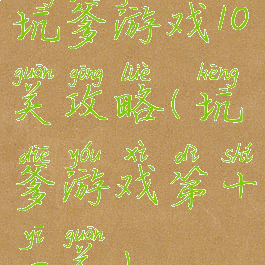 坑爹游戏10
guān gōng lüè hēng
关攻略(坑
diē yóu xì dì shí
爹游戏第十
yī guān
一关)